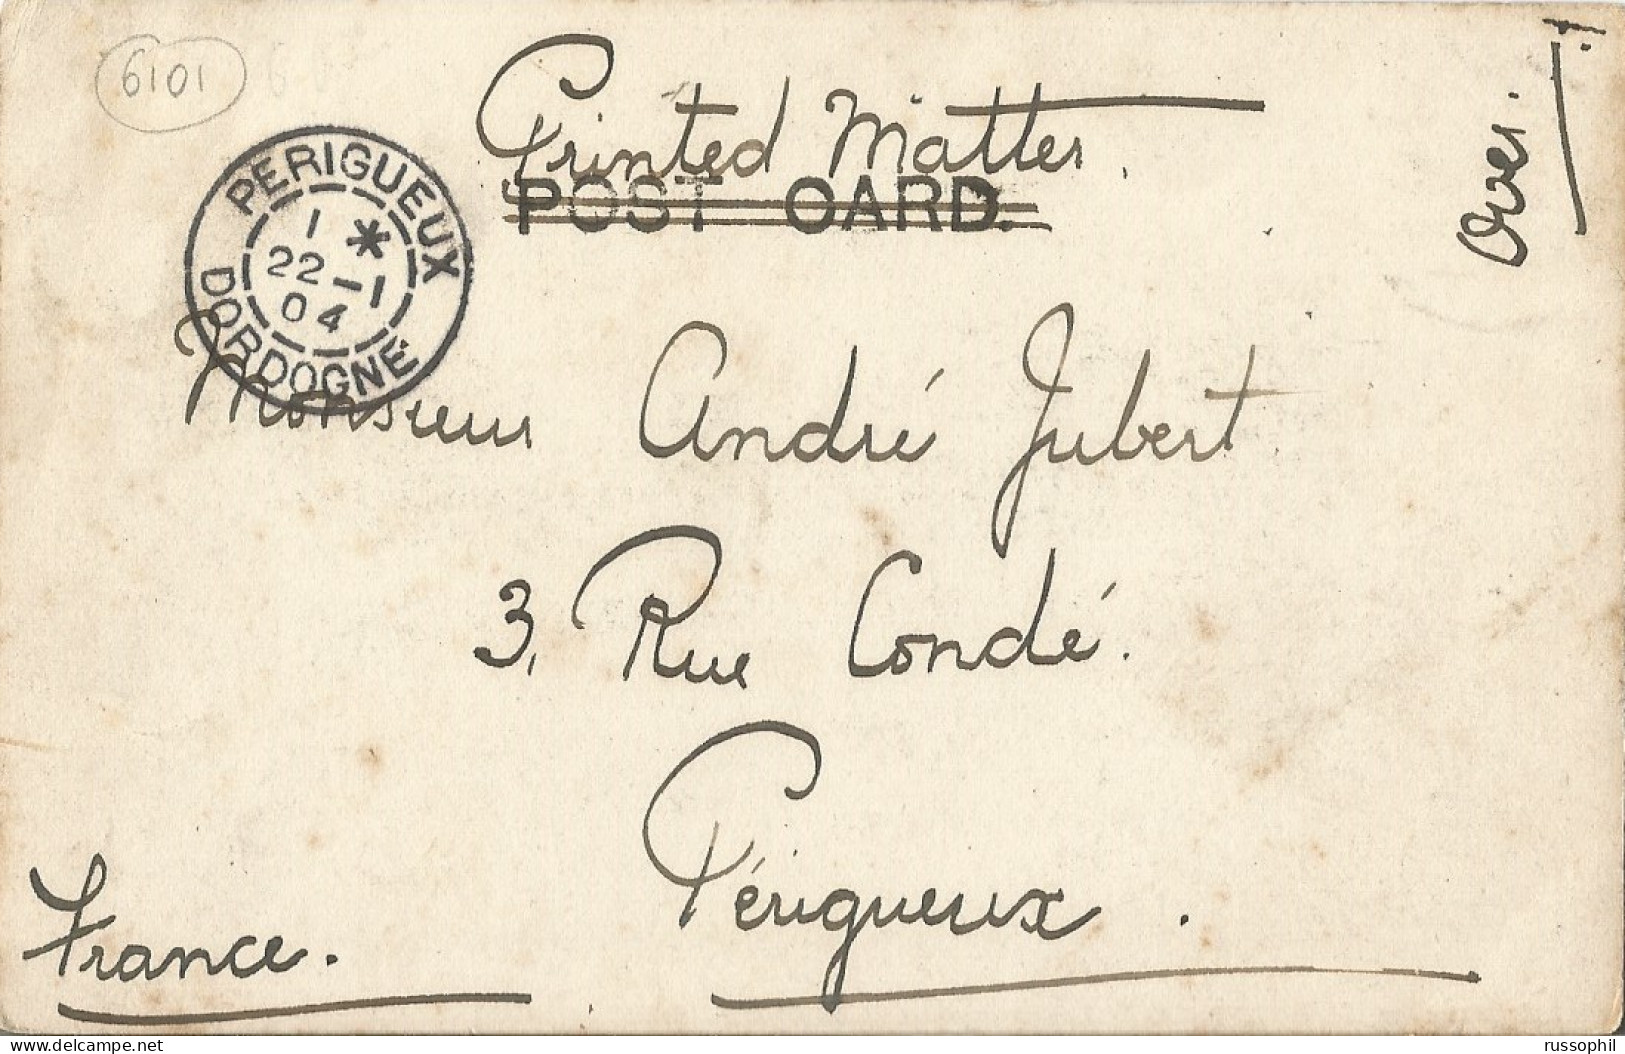 6101
Printed Matter.
POST CARD.
Over.
PERIGUEUX
1 *
22 -1
04
DORDOGNE
Monsieur André Jubert
3, Rue Condé.
Périgueux.
France.
Delcampe.net
russophil